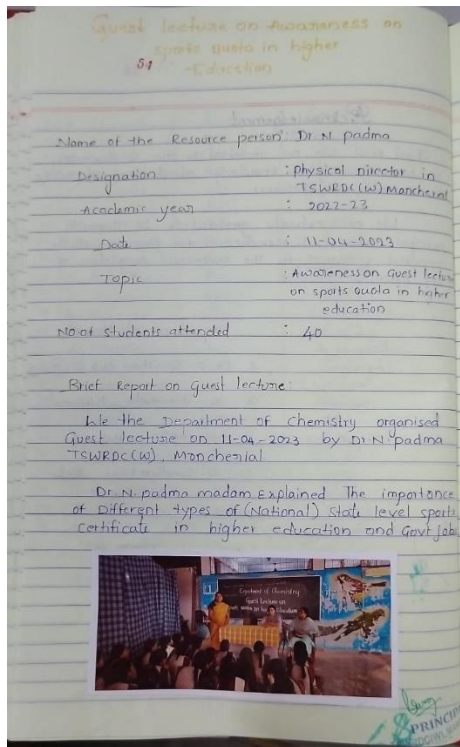 Guest lecture on Awareness on
sports quota in higher
51
Education
Name of the Resource person : Dr. N. padma
Designation : physical Director in
TSWRDC(W) Mancherial
Academic year : 2022-23
Date : 11-04-2023
Topic : Awareness on Guest lecture
on sports quota in higher
education
No. of students attended : 40
Brief Report on Guest lecture:
We the Department of Chemistry organised
Guest lecture on 11-04-2023 by Dr N padma
TSWRDC(W), Mancherial
Dr. N. padma madam Explained The importance
of Different types of (National) state level sports
certificate in higher education and Govt Job
Department of Chemistry
Guest Lecture on
PRINCIP